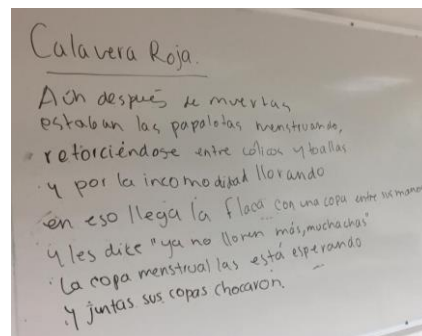 Calavera Roja.
Aún después de muertas
estaban las papalotas menstruando,
retorciéndose entre cólicos y toallas
y por la incomodidad llorando
en eso llega la flaca con una copa entre sus manos
y les dice "ya no lloren más, muchachas"
La copa menstrual las está esperando
y juntas sus copas chocaron.